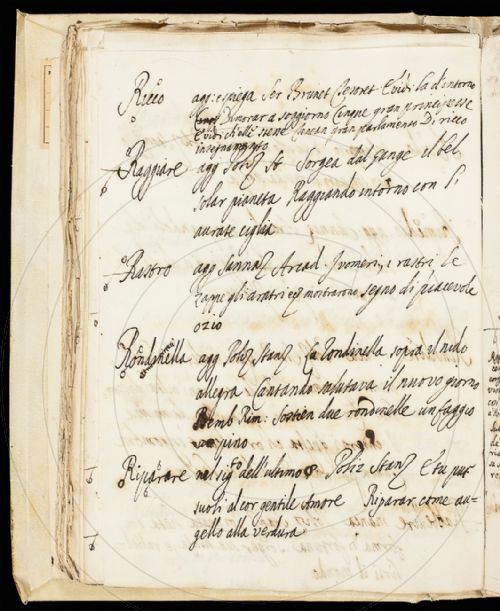 Ricco agg: spiega Ser Brunet Tesoret Evidi la d'intorno
Dimorar a soggiorno Cinque gran principesse
Evidi ch'elle stesse tenean gran parlamento Di ricco
insegnamento
Raggiare agg Poliz St Sorgea dal Gange il bel
solar pianeta Raggiando intorno con l'
aurate ciglia
Rastro agg Sannaz Arcad I vomeri, i rastri le
zappe gli aratri mostrarono segno di piacevole
ozio
Rondinella agg Poliz Stanz La Rondinella sopra il nido
allegra Cantando salutava il nuovo giorno
Bemb Rim: Sostien due rondinelle un faggio
pino
Riparare nel sigto dell'ultimo § Poliz Stanz E tu pur
suoli al cor gentile Amore Riparar come au-
gello alla verdura